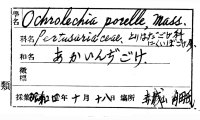 学名 Ochrolechia porella, Mass.
科名 Pertusariaceae. とりはだごけ科
にくいぼごけ属
和名 あかいんぢごけ.
備考
採集 昭和四年十月十八日 場所
類